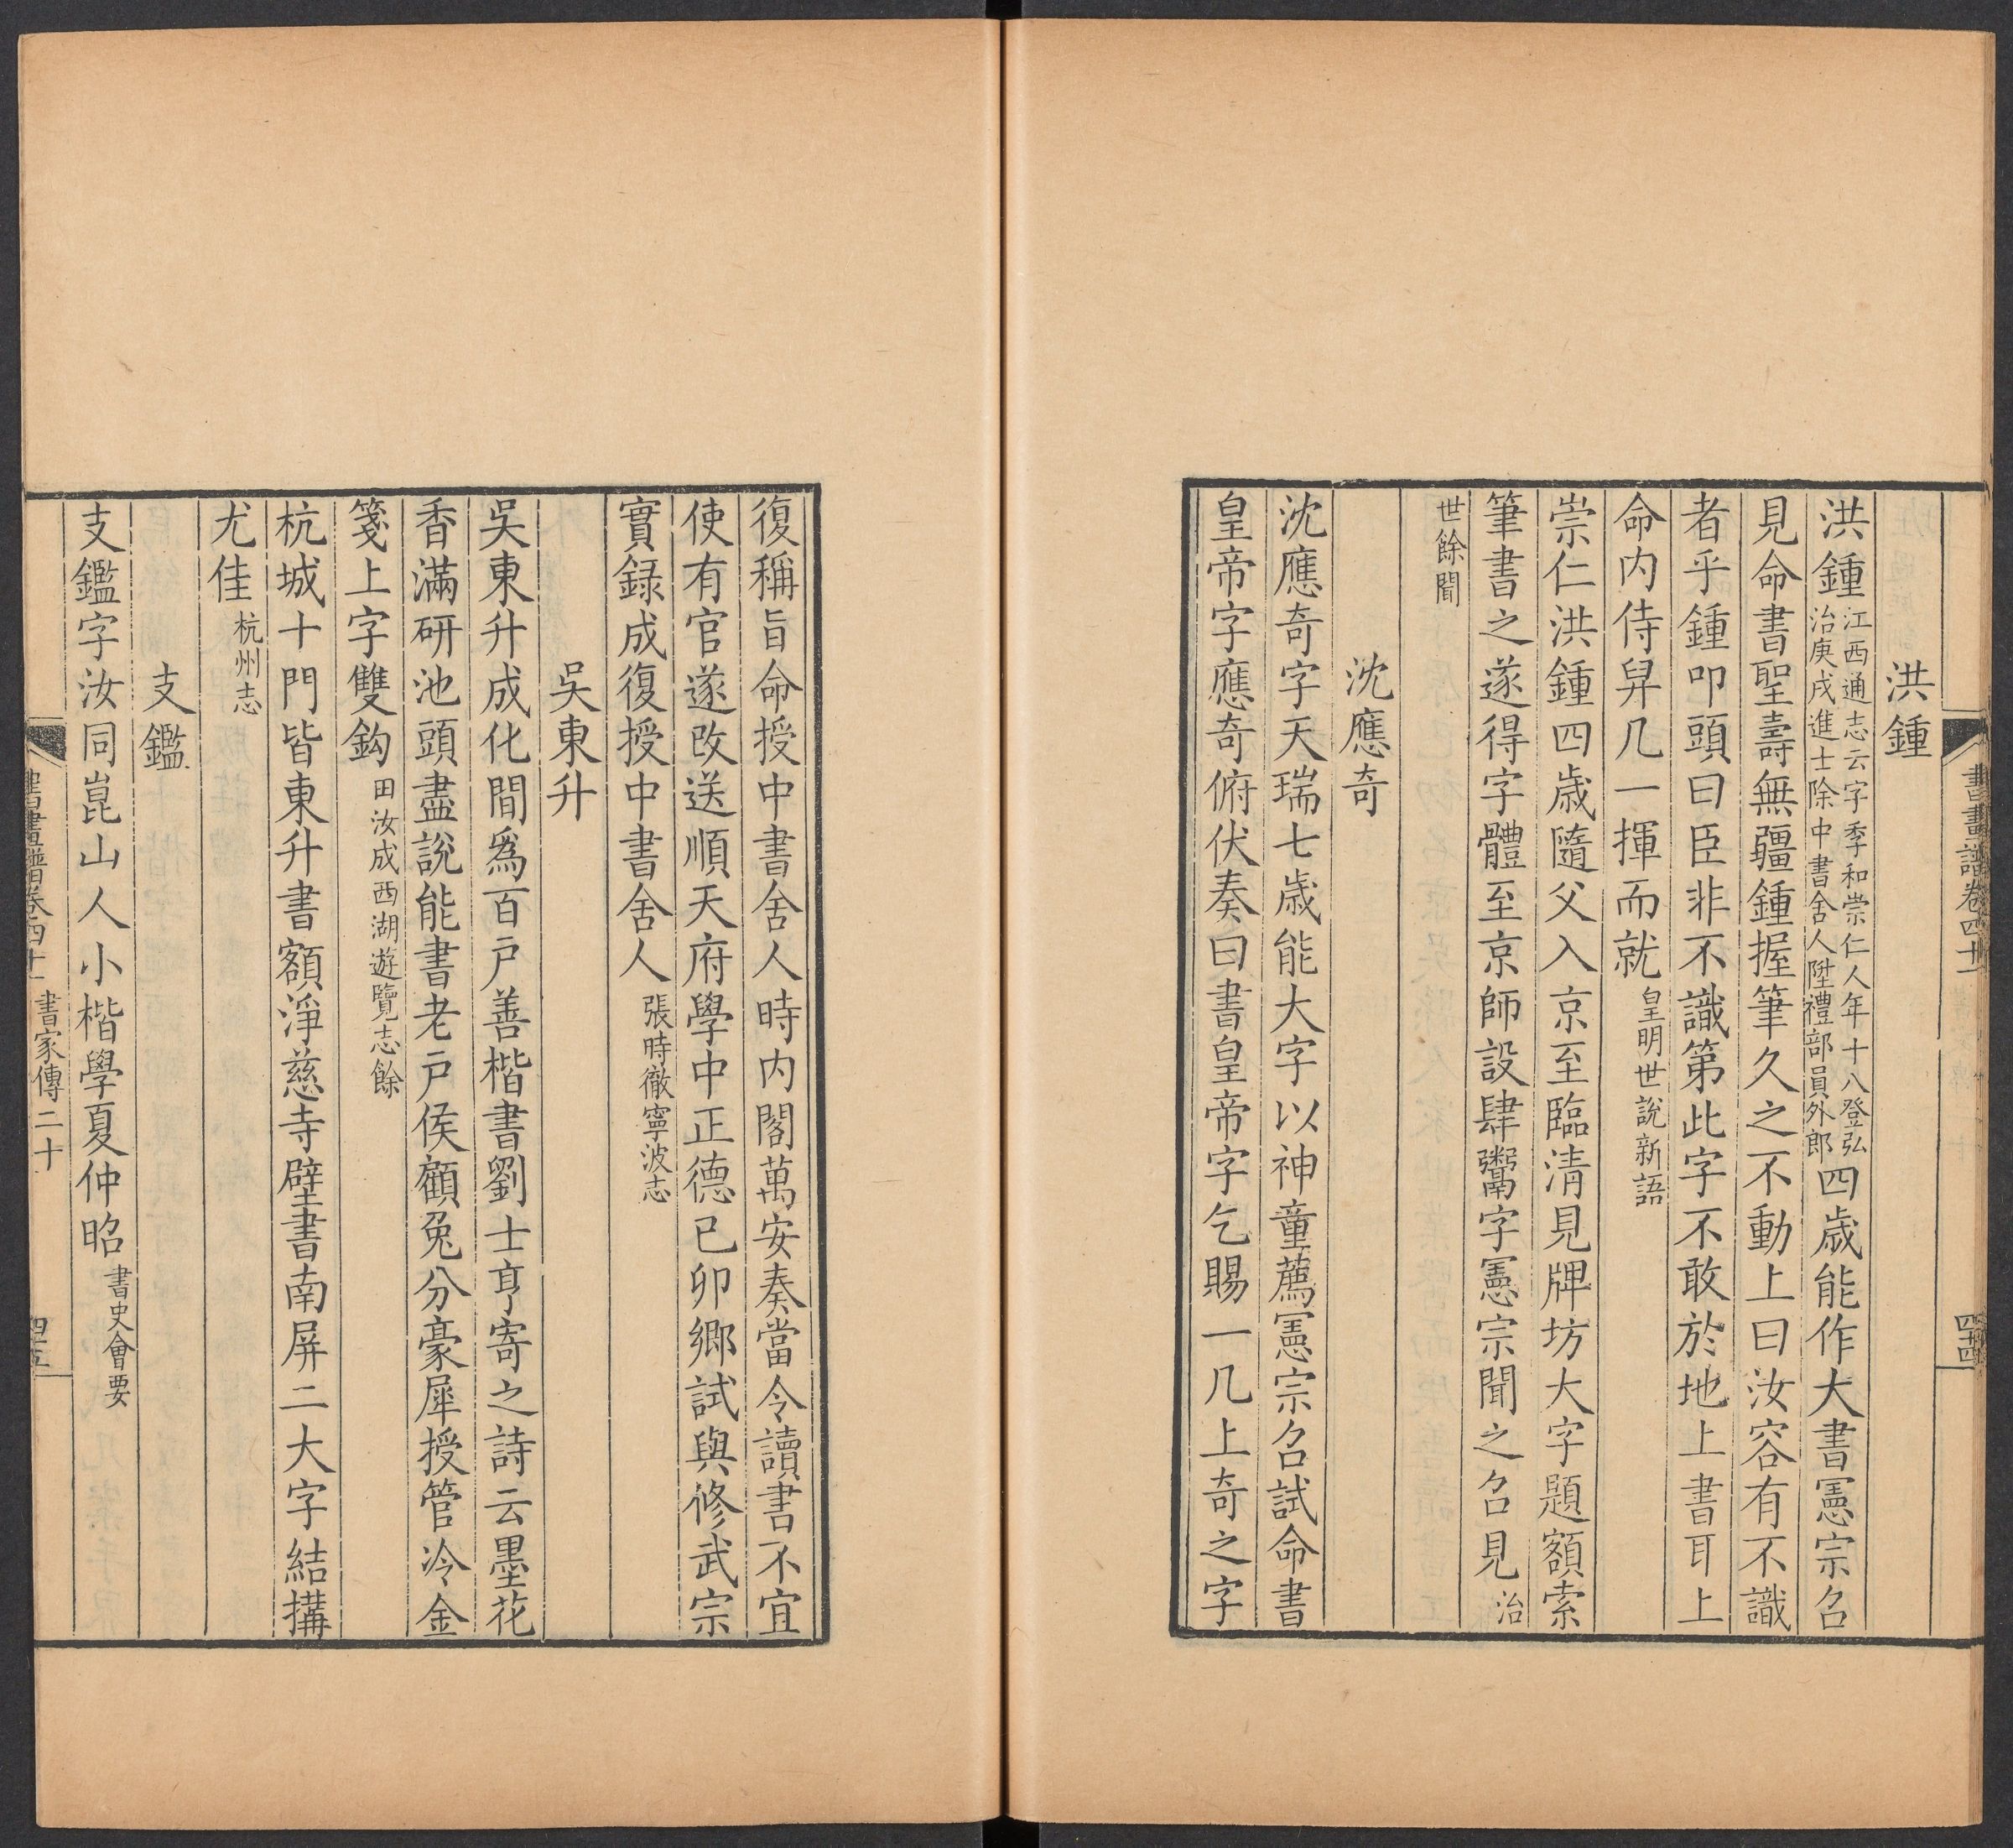 書畫譜卷四十一
四十四
洪鍾
洪鍾江西通志云字季和崇仁人年十八登弘治庚戌進士除中書舍人陞禮部員外郎四歲能作大書憲宗召
見命書聖壽無疆鍾握筆久之不動上曰汝容有不識
者乎鍾叩頭曰臣非不識第此字不敢於地上書耳上
命內侍舁几一揮而就皇明世說新語
崇仁洪鍾四歲隨父入京至臨清見牌坊大字題額索
筆書之遂得字體至京師設肆鬻字憲宗聞之召見治
世餘聞
沈應奇
沈應奇字天瑞七歲能大字以神童薦憲宗召試命書
皇帝字應奇俯伏奏曰書皇帝字乞賜一几上奇之字
復稱旨命授中書舍人時内閣萬安奏當令讀書不宜
使有官遂改送順天府學中正德己卯鄉試與修武宗
實録成復授中書舍人張時徹寧波志
吳東升
吳東升成化間爲百戶善楷書劉士亨寄之詩云墨花
香滿研池頭盡說能書老戶侯顧兔分豪犀授管泠金
箋上字雙鈎田汝成西湖遊覽志餘
杭城十門皆東升書額淨慈寺壁書南屏二大字結搆
尤佳杭州志
支鑑
支鑑字汝同崑山人小楷學夏仲昭書史會要
書畫譜卷四十一
書家傳二十
四十五